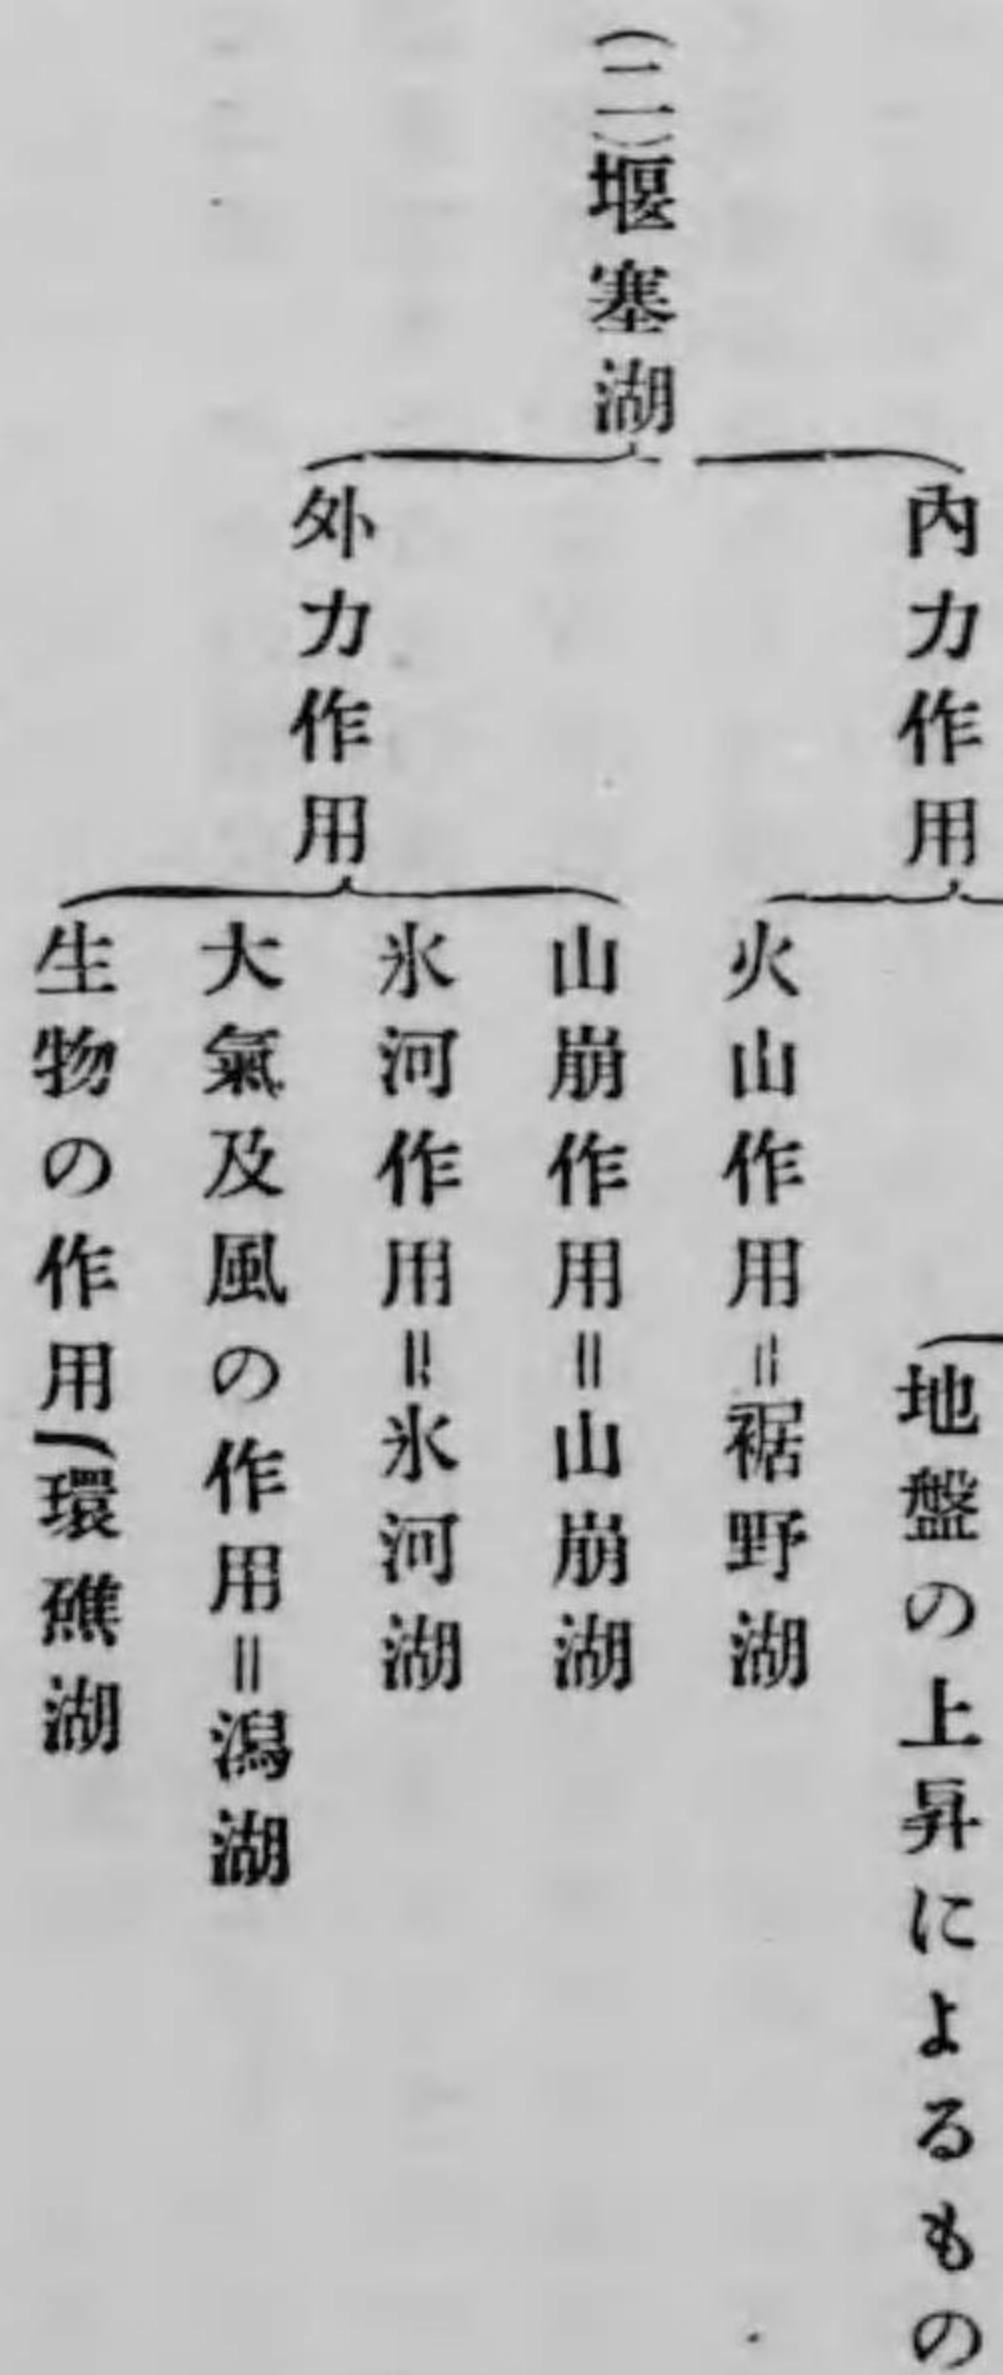 (二)堰塞湖
內力作用
地盤の上昇によるもの
火山作用=裾野湖
外力作用
山崩作用=山崩湖
氷河作用=氷河湖
大氣及風の作用=潟湖
生物の作用(環礁湖